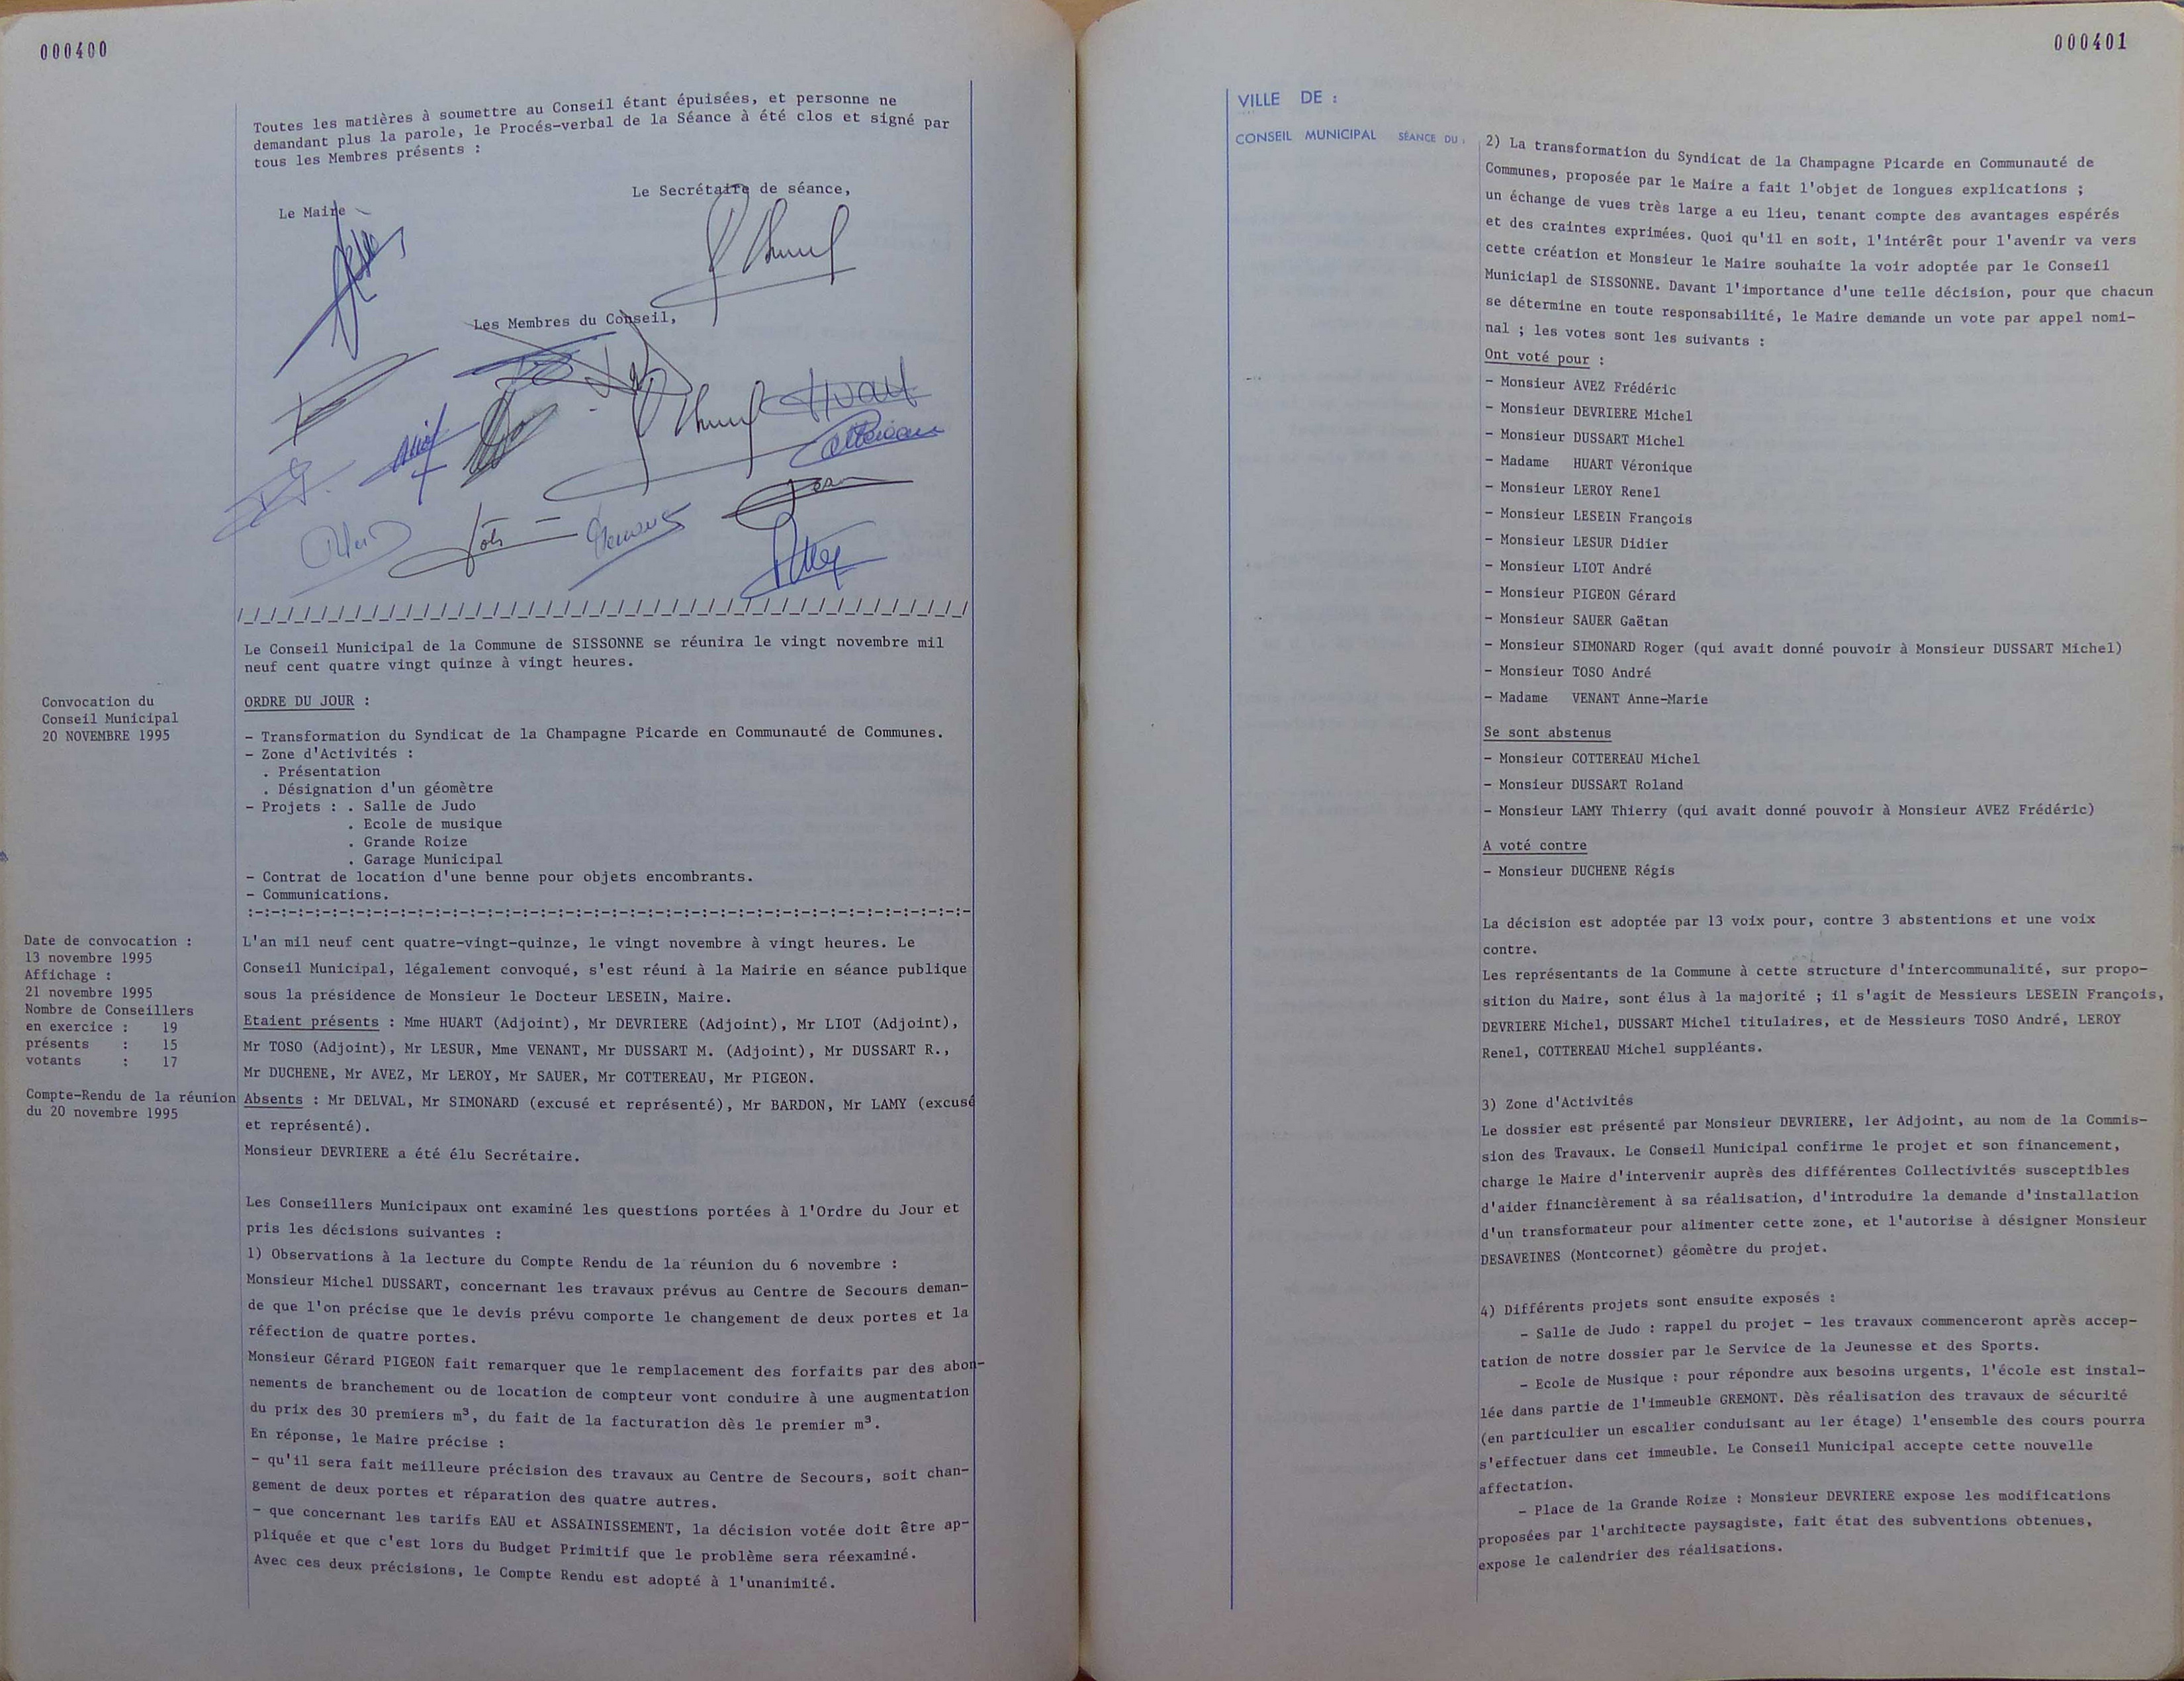 000400
Toutes les matières à soumettre au Conseil étant épuisées, et personne ne
demandant plus la parole, le Procés-verbal de la Séance à été clos et signé par
tous les Membres présents :
Le Secrétaire de séance,
Le Maire
Les Membres du Conseil,
Le Conseil Municipal de la Commune de SISSONNE se réunira le vingt novembre mil
neuf cent quatre vingt quinze à vingt heures.
Convocation du
Conseil Municipal
20 NOVEMBRE 1995
ORDRE DU JOUR :
- Transformation du Syndicat de la Champagne Picarde en Communauté de Communes.
- Zone d'Activités :
. Présentation
. Désignation d'un géomètre
- Projets : . Salle de Judo
. Ecole de musique
. Grande Roize
. Garage Municipal
- Contrat de location d'une benne pour objets encombrants.
- Communications.
Date de convocation :
13 novembre 1995
Affichage :
21 novembre 1995
Nombre de Conseillers
en exercice : 19
présents : 15
votants : 17
Compte-Rendu de la réunion
du 20 novembre 1995
L'an mil neuf cent quatre-vingt-quinze, le vingt novembre à vingt heures. Le
Conseil Municipal, légalement convoqué, s'est réuni à la Mairie en séance publique
sous la présidence de Monsieur le Docteur LESEIN, Maire.
Etaient présents : Mme HUART (Adjoint), Mr DEVRIERE (Adjoint), Mr LIOT (Adjoint),
Mr TOSO (Adjoint), Mr LESUR, Mme VENANT, Mr DUSSART M. (Adjoint), Mr DUSSART R.,
Mr DUCHENE, Mr AVEZ, Mr LEROY, Mr SAUER, Mr COTTEREAU, Mr PIGEON.
Absents : Mr DELVAL, Mr SIMONARD (excusé et représenté), Mr BARDON, Mr LAMY (excusé
et représenté).
Monsieur DEVRIERE a été élu Secrétaire.
Les Conseillers Municipaux ont examiné les questions portées à l'Ordre du Jour et
pris les décisions suivantes :
1) Observations à la lecture du Compte Rendu de la réunion du 6 novembre :
Monsieur Michel DUSSART, concernant les travaux prévus au Centre de Secours deman-
de que l'on précise que le devis prévu comporte le changement de deux portes et la
réfection de quatre portes.
Monsieur Gérard PIGEON fait remarquer que le remplacement des forfaits par des abon-
nements de branchement ou de location de compteur vont conduire à une augmentation
du prix des 30 premiers m³, du fait de la facturation dès le premier m³.
En réponse, le Maire précise :
- qu'il sera fait meilleure précision des travaux au Centre de Secours, soit chan-
gement de deux portes et réparation des quatre autres.
- que concernant les tarifs EAU et ASSAINISSEMENT, la décision votée doit être ap-
pliquée et que c'est lors du Budget Primitif que le problème sera réexaminé.
Avec ces deux précisions, le Compte Rendu est adopté à l'unanimité.
000401
VILLE DE :
CONSEIL MUNICIPAL SÉANCE DU :
2) La transformation du Syndicat de la Champagne Picarde en Communauté de
Communes, proposée par le Maire a fait l'objet de longues explications ;
un échange de vues très large a eu lieu, tenant compte des avantages espérés
et des craintes exprimées. Quoi qu'il en soit, l'intérêt pour l'avenir va vers
cette création et Monsieur le Maire souhaite la voir adoptée par le Conseil
Municiapl de SISSONNE. Davant l'importance d'une telle décision, pour que chacun
se détermine en toute responsabilité, le Maire demande un vote par appel nomi-
nal ; les votes sont les suivants :
Ont voté pour :
- Monsieur AVEZ Frédéric
- Monsieur DEVRIERE Michel
- Monsieur DUSSART Michel
- Madame HUART Véronique
- Monsieur LEROY Renel
- Monsieur LESEIN François
- Monsieur LESUR Didier
- Monsieur LIOT André
- Monsieur PIGEON Gérard
- Monsieur SAUER Gaëtan
- Monsieur SIMONARD Roger (qui avait donné pouvoir à Monsieur DUSSART Michel)
- Monsieur TOSO André
- Madame VENANT Anne-Marie
Se sont abstenus
- Monsieur COTTEREAU Michel
- Monsieur DUSSART Roland
- Monsieur LAMY Thierry (qui avait donné pouvoir à Monsieur AVEZ Frédéric)
A voté contre
- Monsieur DUCHENE Régis
La décision est adoptée par 13 voix pour, contre 3 abstentions et une voix
contre.
Les représentants de la Commune à cette structure d'intercommunalité, sur propo-
sition du Maire, sont élus à la majorité ; il s'agit de Messieurs LESEIN François,
DEVRIERE Michel, DUSSART Michel titulaires, et de Messieurs TOSO André, LEROY
Renel, COTTEREAU Michel suppléants.
3) Zone d'Activités
Le dossier est présenté par Monsieur DEVRIERE, 1er Adjoint, au nom de la Commis-
sion des Travaux. Le Conseil Municipal confirme le projet et son financement,
charge le Maire d'intervenir auprès des différentes Collectivités susceptibles
d'aider financièrement à sa réalisation, d'introduire la demande d'installation
d'un transformateur pour alimenter cette zone, et l'autorise à désigner Monsieur
DESAVEINES (Montcornet) géomètre du projet.
4) Différents projets sont ensuite exposés :
- Salle de Judo : rappel du projet - les travaux commenceront après accep-
tation de notre dossier par le Service de la Jeunesse et des Sports.
- Ecole de Musique : pour répondre aux besoins urgents, l'école est instal-
lée dans partie de l'immeuble GREMONT. Dès réalisation des travaux de sécurité
(en particulier un escalier conduisant au 1er étage) l'ensemble des cours pourra
s'effectuer dans cet immeuble. Le Conseil Municipal accepte cette nouvelle
affectation.
- Place de la Grande Roize : Monsieur DEVRIERE expose les modifications
proposées par l'architecte paysagiste, fait état des subventions obtenues,
expose le calendrier des réalisations.